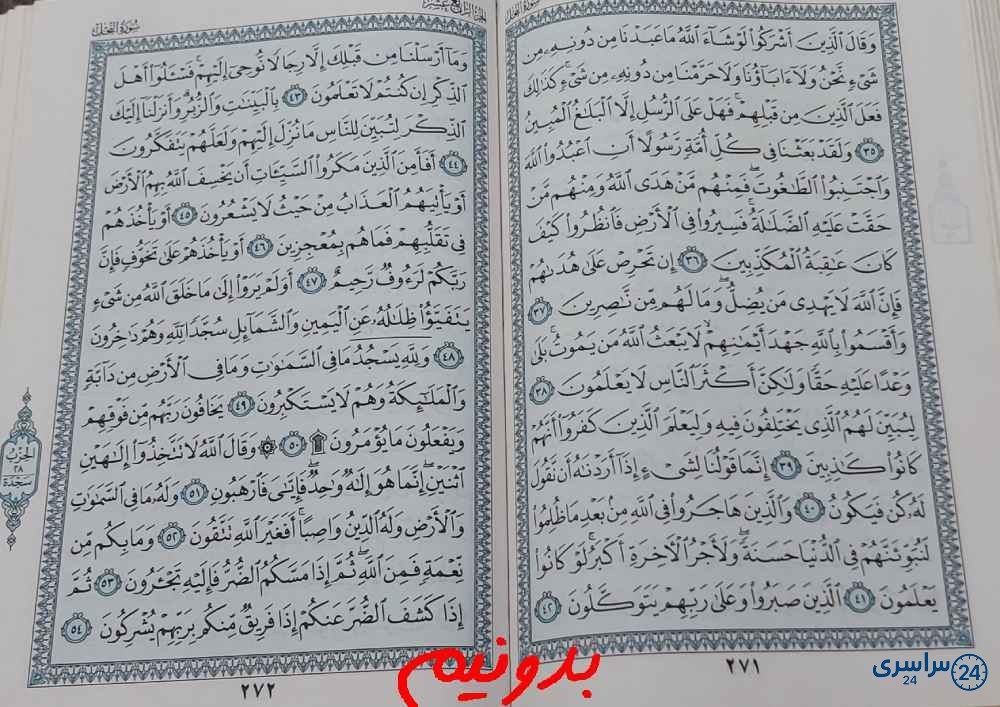 سورة النحل
وقال الذين أشركوا لو شاء الله ما عبدنا من دونه من
شيء نحن ولا ءاباؤنا ولا حرمنا من دونه من شيء كذلك
فعل الذين من قبلهم فهل على الرسل إلا البلغ المبين
٣٥ ولقد بعثنا في كل أمة رسولا أن اعبدوا الله
واجتنبوا الطغوت فمنهم من هدى الله ومنهم من
حقت عليه الضللة فسيروا في الأرض فانظروا كيف
كان عقبة المكذبين ٣٦ إن تحرص على هدىهم
فإن الله لا يهدي من يضل وما لهم من نصرين ٣٧
وأقسموا بالله جهد أيمنهم لا يبعث الله من يموت بلى
وعدا عليه حقا ولكن أكثر الناس لا يعلمون ٣٨
ليبين لهم الذي يختلفون فيه وليعلم الذين كفروا أنهم
كانوا كذبين ٣٩ إنما قولنا لشيء إذا أردنه أن نقول
له كن فيكون ٤٠ والذين هاجروا في الله من بعد ما ظلموا
لنبوئنهم في الدنيا حسنة ولأجر الأخرة أكبر لو كانوا
يعلمون ٤١ الذين صبروا وعلى ربهم يتوكلون ٤٢
٢٧١
الجزء الرابع عشر
سورة النحل
وما أرسلنا من قبلك إلا رجالا نوحي إليهم فسئلوا أهل
الذكر إن كنتم لا تعلمون ٤٣ بالبينت والزبر وأنزلنا إليك
الذكر لتبين للناس ما نزل إليهم ولعلهم يتفكرون
٤٤ أفأمن الذين مكروا السيئات أن يخسف الله بهم الأرض
أو يأتيهم العذاب من حيث لا يشعرون ٤٥ أو يأخذهم
في تقلبهم فما هم بمعجزين ٤٦ أو يأخذهم على تخوف فإن
ربكم لرءوف رحيم ٤٧ أولم يروا إلى ما خلق الله من شيء
يتفيؤا ظلله عن اليمين والشمائل سجدا لله وهم داخرون
٤٨ ولله يسجد ما في السموت وما في الأرض من دابة
والملئكة وهم لا يستكبرون ٤٩ يخافون ربهم من فوقهم
ويفعلون ما يؤمرون ۩ ٥٠ ۞ وقال الله لا تتخذوا إلهين
اثنين إنما هو إله وحد فإيي فارهبون ٥١ وله ما في السموت
والأرض وله الدين واصبا أفغير الله تتقون ٥٢ وما بكم من
نعمة فمن الله ثم إذا مسكم الضر فإليه تجئرون ٥٣ ثم
إذا كشف الضر عنكم إذا فريق منكم بربهم يشركون ٥٤
٢٧٢
الحزب
٢٨
سجدة
بدونیم
سراسری 24
24